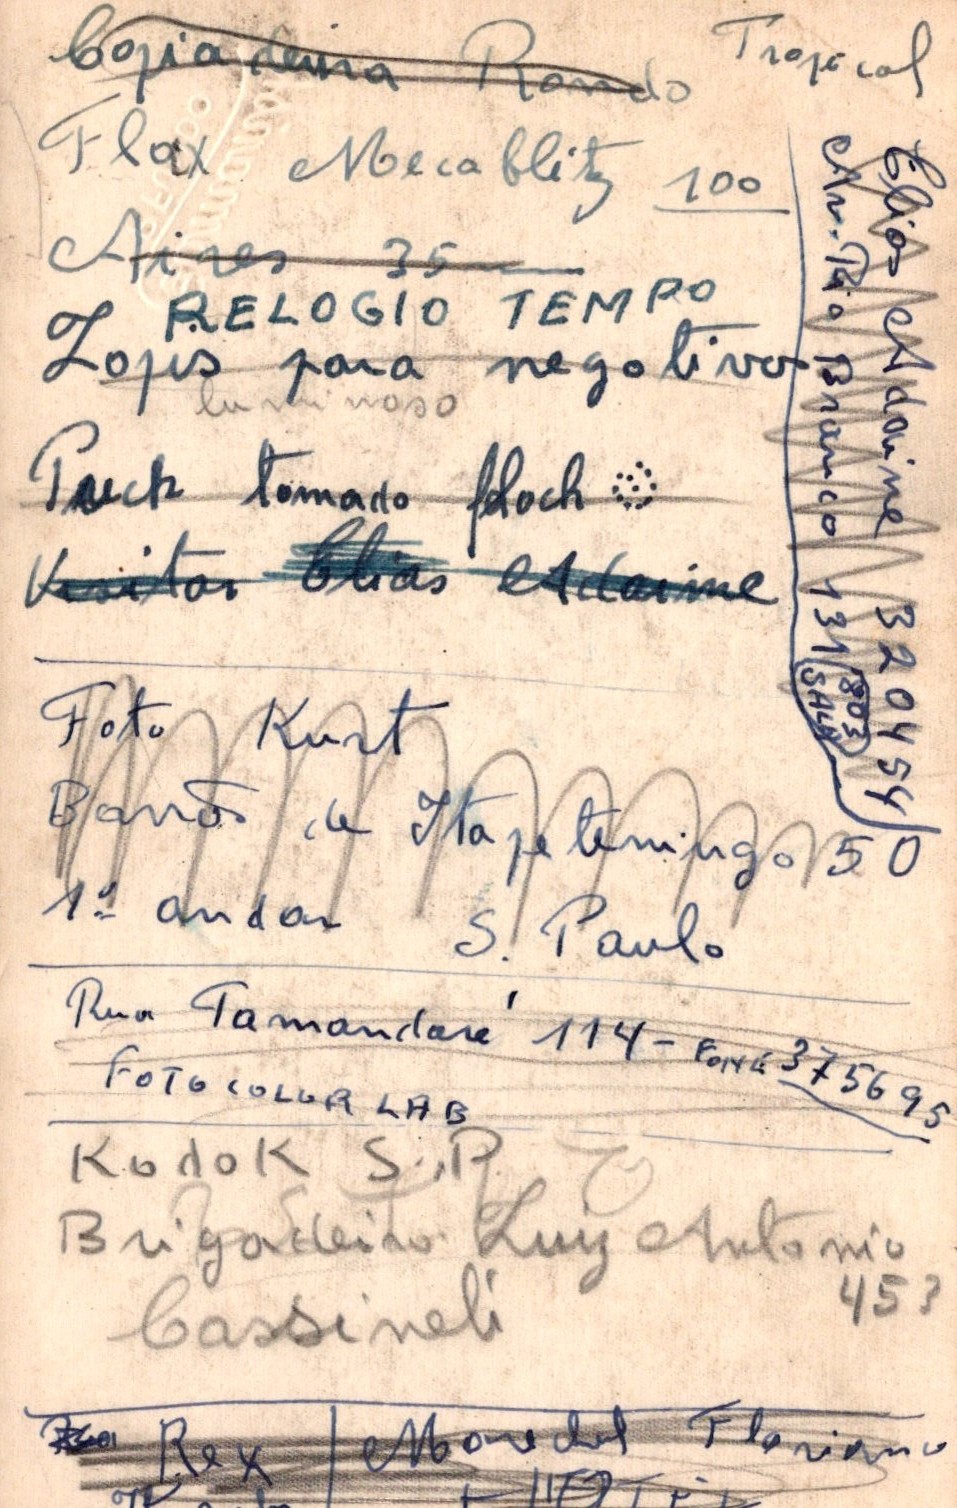 Copiadeira Rondo Tropical
Flax Mecablitz 100
Aires 35
RELOGIO TEMPO
Lopis para negativo
luminoso
Puck tomado floch
Elias Adaime
Elias Adaime 320454
Av. Rio Branco 131 SALA 1803
Foto Kurt
Barão de Itapetininga 50
1º andar S. Paulo
Rua Tamandaré 114 - FONE 375695
FOTOCOLOR LAB
Kodak S.P.
Brigadeiro Luiz Antonio
453
Cassineli
Rex Marechal Floriano